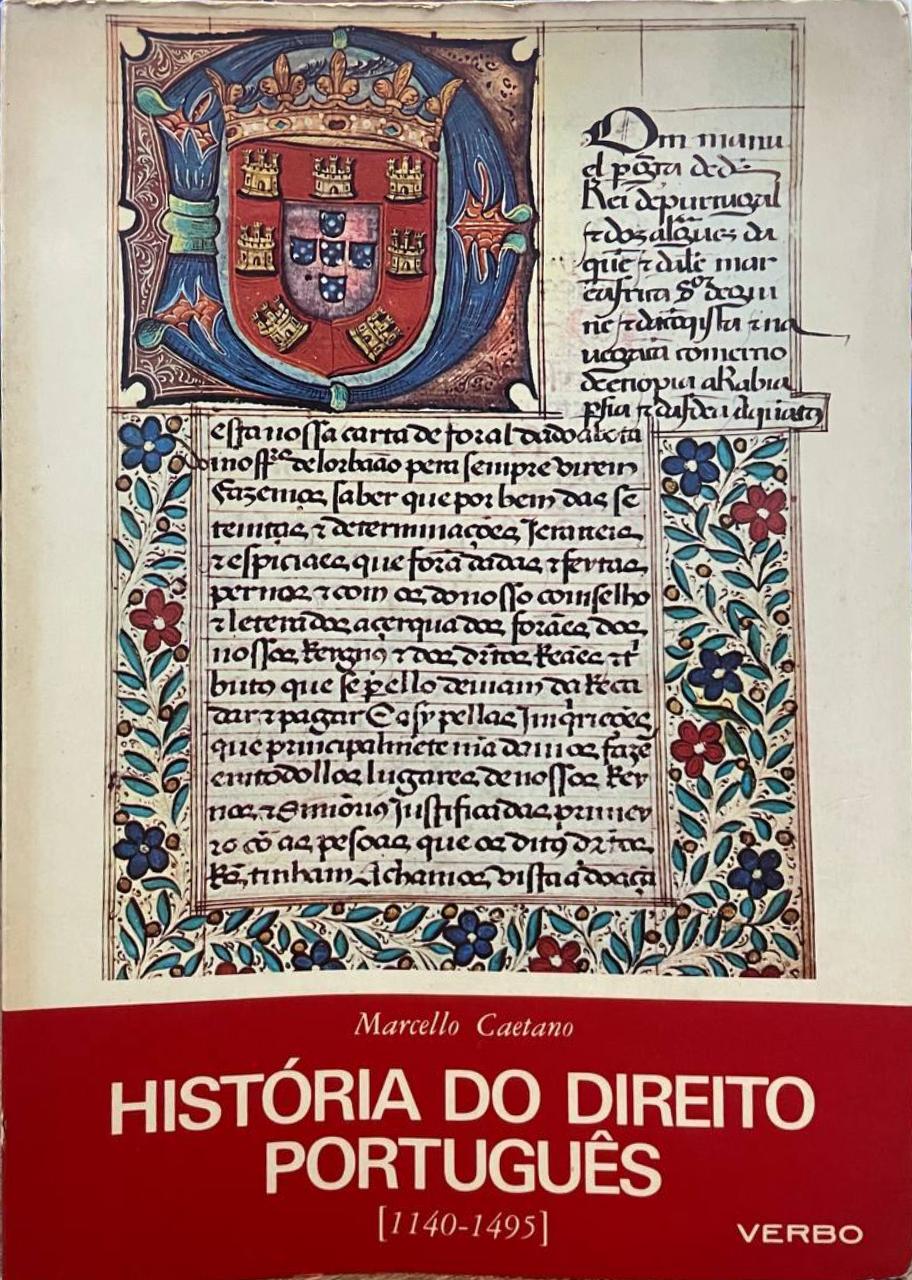 Dom manu
el p graça de ds
Rei de purtugal
& dos algues da
que & dale mar
em africa Sor. de gui
ne & da coqista & na
uegaçã comercio
de etiopia aRabia
psia & da Jndia A quãtos
esta nossa carta de foral dado
de lorbaão pera sempre virem
fazemos saber que por bem das se
temças & determinações Jeraaeis
& espiciaes que forã dadas & feytas
per nos & com os do nosso comselho
& leterados açerqua dos foraes dos
nossos Regnos & dos dritos Reaes & t
butos que se pello deuiam da Reca
dar & pagar E asy pellas Jmqricões
que principalmete mãdamos faze
em todollos lugares de nossos Rey
nos & Smorios Justificadas primey
ro cõ as pesoas que os ditos dritos
Rs. tinham Achamos vista a doaçã
Marcello Caetano
HISTÓRIA DO DIREITO
PORTUGUÊS
[1140-1495]
VERBO